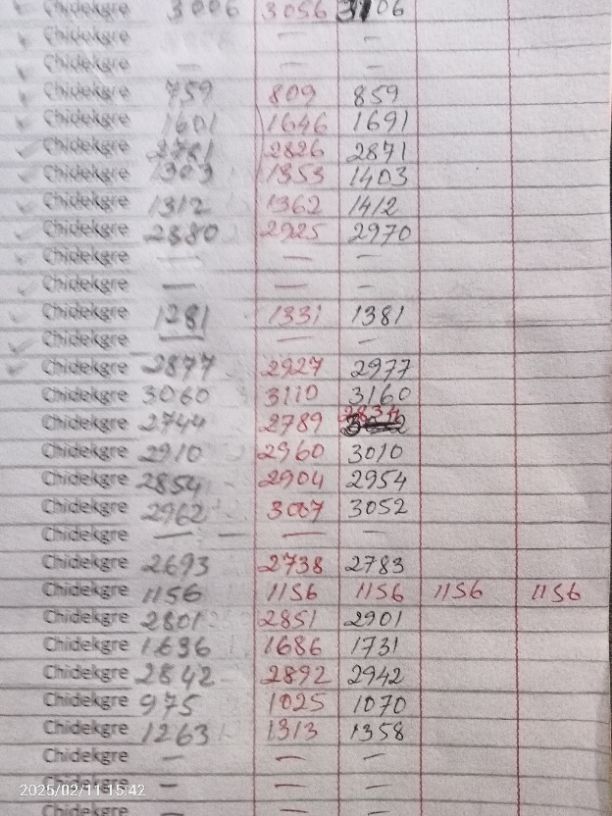 Chidekgre 3006 3056 3106
Chidekgre — — —
Chidekgre — — —
Chidekgre 759 809 859
Chidekgre 1601 1646 1691
Chidekgre 2781 2826 2871
Chidekgre 1303 1353 1403
Chidekgre 1312 1362 1412
Chidekgre 2880 2925 2970
Chidekgre — — —
Chidekgre — — —
Chidekgre 1281 1331 1381
Chidekgre — — —
Chidekgre 2877 2927 2977
Chidekgre 3060 3110 3160
Chidekgre 2744 2789 2834
Chidekgre 2910 2960 3010
Chidekgre 2854 2904 2954
Chidekgre 2962 3007 3052
Chidekgre — — — —
Chidekgre 2693 2738 2783
Chidekgre 1156 1156 1156 1156 1156
Chidekgre 2801 2851 2901
Chidekgre 1636 1686 1731
Chidekgre 2842 2892 2942
Chidekgre 975 1025 1070
Chidekgre 1263 1313 1358
Chidekgre — — —
Chidekgre — — —
2025/02/11 15:42
Chidekgre — — —